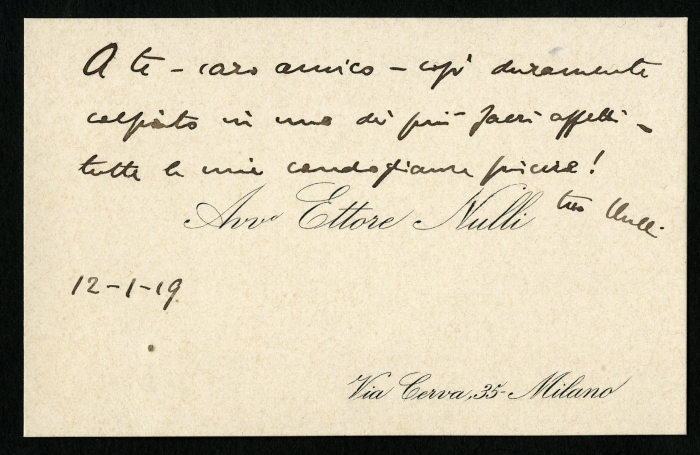 A te - caro amico - così duramente
colpito in uno dei più sacri affetti -
tutte le mie condoglianze sincere!
Avv.o Ettore Nulli tuo Nulli
12-1-19
Via Cerva, 35 - Milano